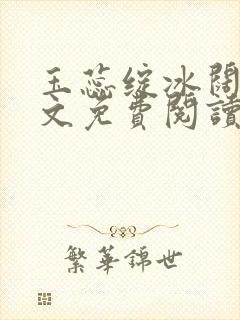 玉蕊绽冰阔
文免費閱讀
繁華錦世